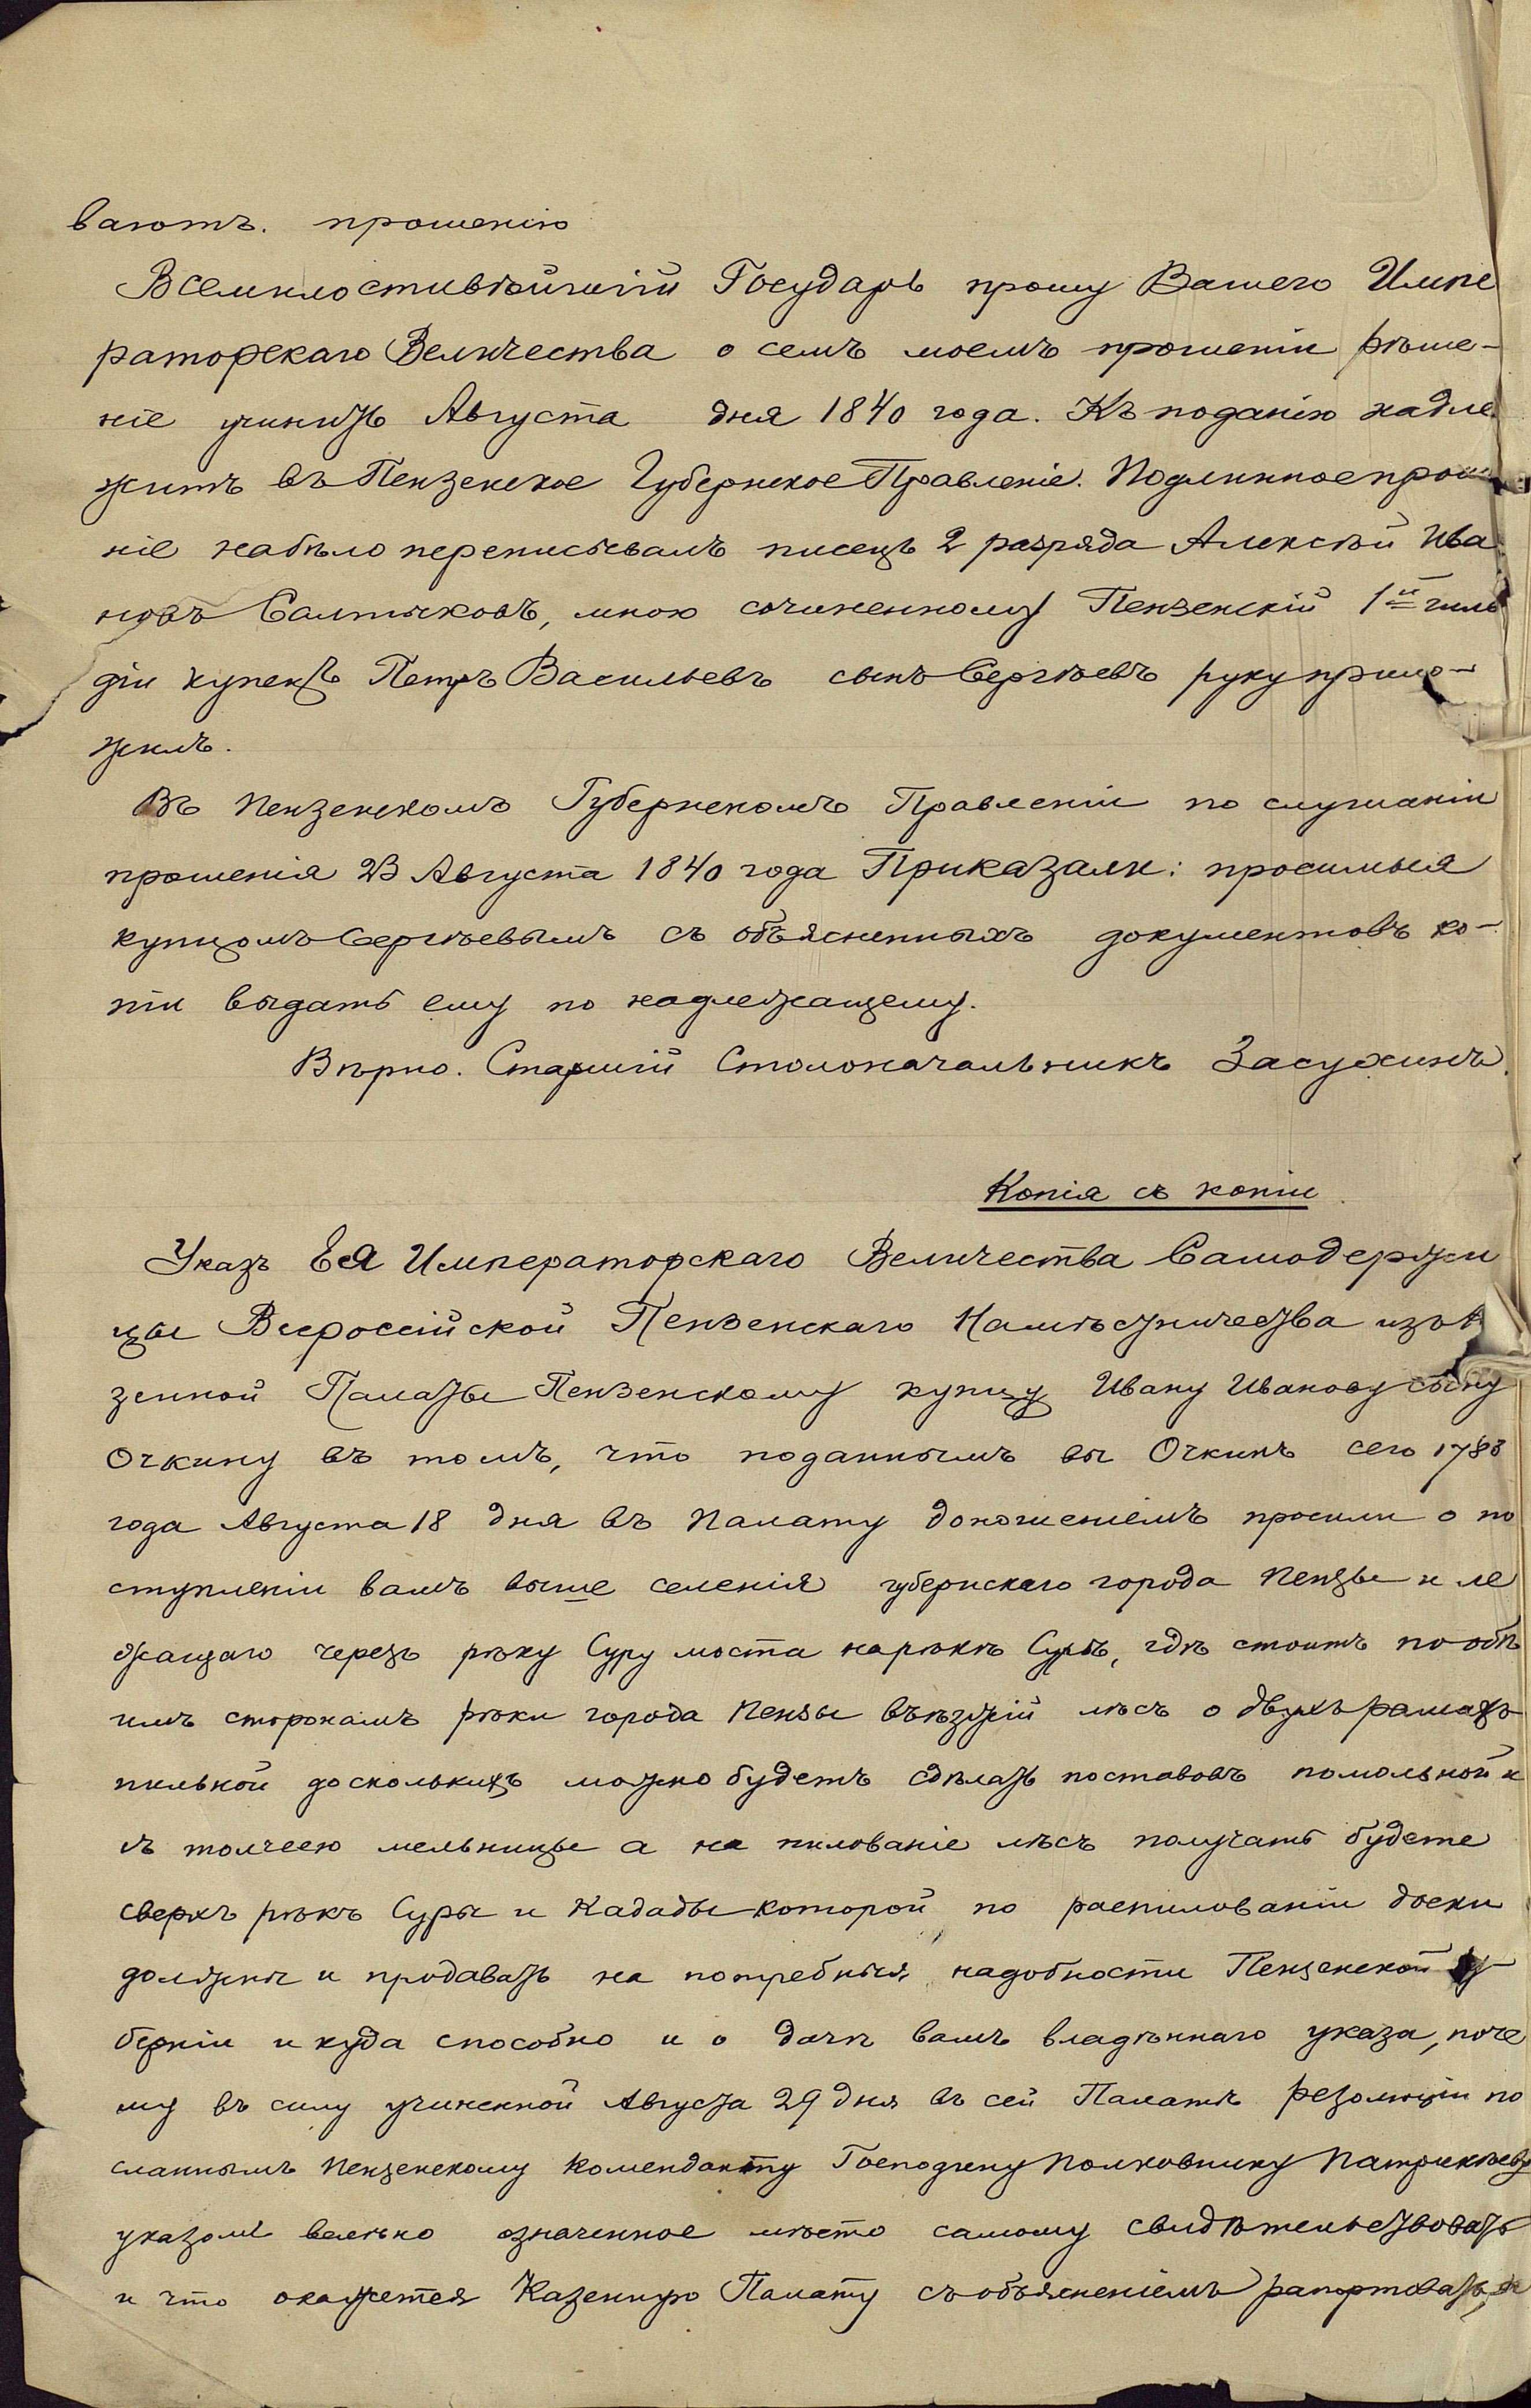 ваютъ. прошенію
Всемилостивѣйшій Государь прошу Вашего Импе
раторскаго Величества о семъ моемъ прошеніи рѣше-
ніе учинить Августа дня 1840 года. Къ поданію надле
житъ въ Пензенское Губернское Правленіе. Подлинное прош
ніе набѣло переписывалъ писецъ 2 разряда Алексѣй Ива
новъ Салтыковъ, мною сочиненному Пензенскій 1й гиль
діи купецъ Петръ Васильевъ сынъ Сергѣевъ руку прило-
жилъ.
Въ Пензенскомъ Губернскомъ Правленіи по слушаніи
прошенія 23 Августа 1840 года Приказали: просимыя
купцомъ Сергѣевымъ съ объясненныхъ документовъ ко-
піи выдать ему по надлежащему.
Вѣрно. Старшій Столоначальникъ Засухинъ.
Копія съ копіи.
Указъ Ея Императорскаго Величества Самодержи
цы Всероссійской Пензенскаго Намѣстничества изъ
зенной Палаты Пензенскому купцу Ивану Иванову сыну
Очкину въ томъ, что поданнымъ вы Очкинъ сего 1783
года Августа 18 дня въ Палату доношеніемъ просили о по
ступленіи вамъ выше селенія губернскаго города Пензы и ле
жащаго черезъ рѣку Суру моста на рѣкѣ Сурѣ, гдѣ стоитъ по обѣ
имъ сторонамъ рѣки города Пензы въѣзжій лѣсъ о двухъ рамахъ
пильной до сколькихъ можно будетъ сдѣлать поставовъ помольной и
съ толчеею мельницы а на пилованіе лѣсъ получать будете
сверхъ рѣкъ Суры и Кадады которой по распилованіи доски
должны и продавать на потребныя надобности Пензенской гу-
берніи и куда способно и о дачѣ вамъ владѣннаго указа, поче
му въ силу учиненной Августа 29 дня въ сей Палатѣ резолюціи по
сланнымъ Пензенскому Коменданту Господину Полковнику Патрикѣеву
указомъ велѣно означенное мѣсто самому свидѣтельствовать
и что окажется Казенную Палату съ объясненіемъ рапортовать,